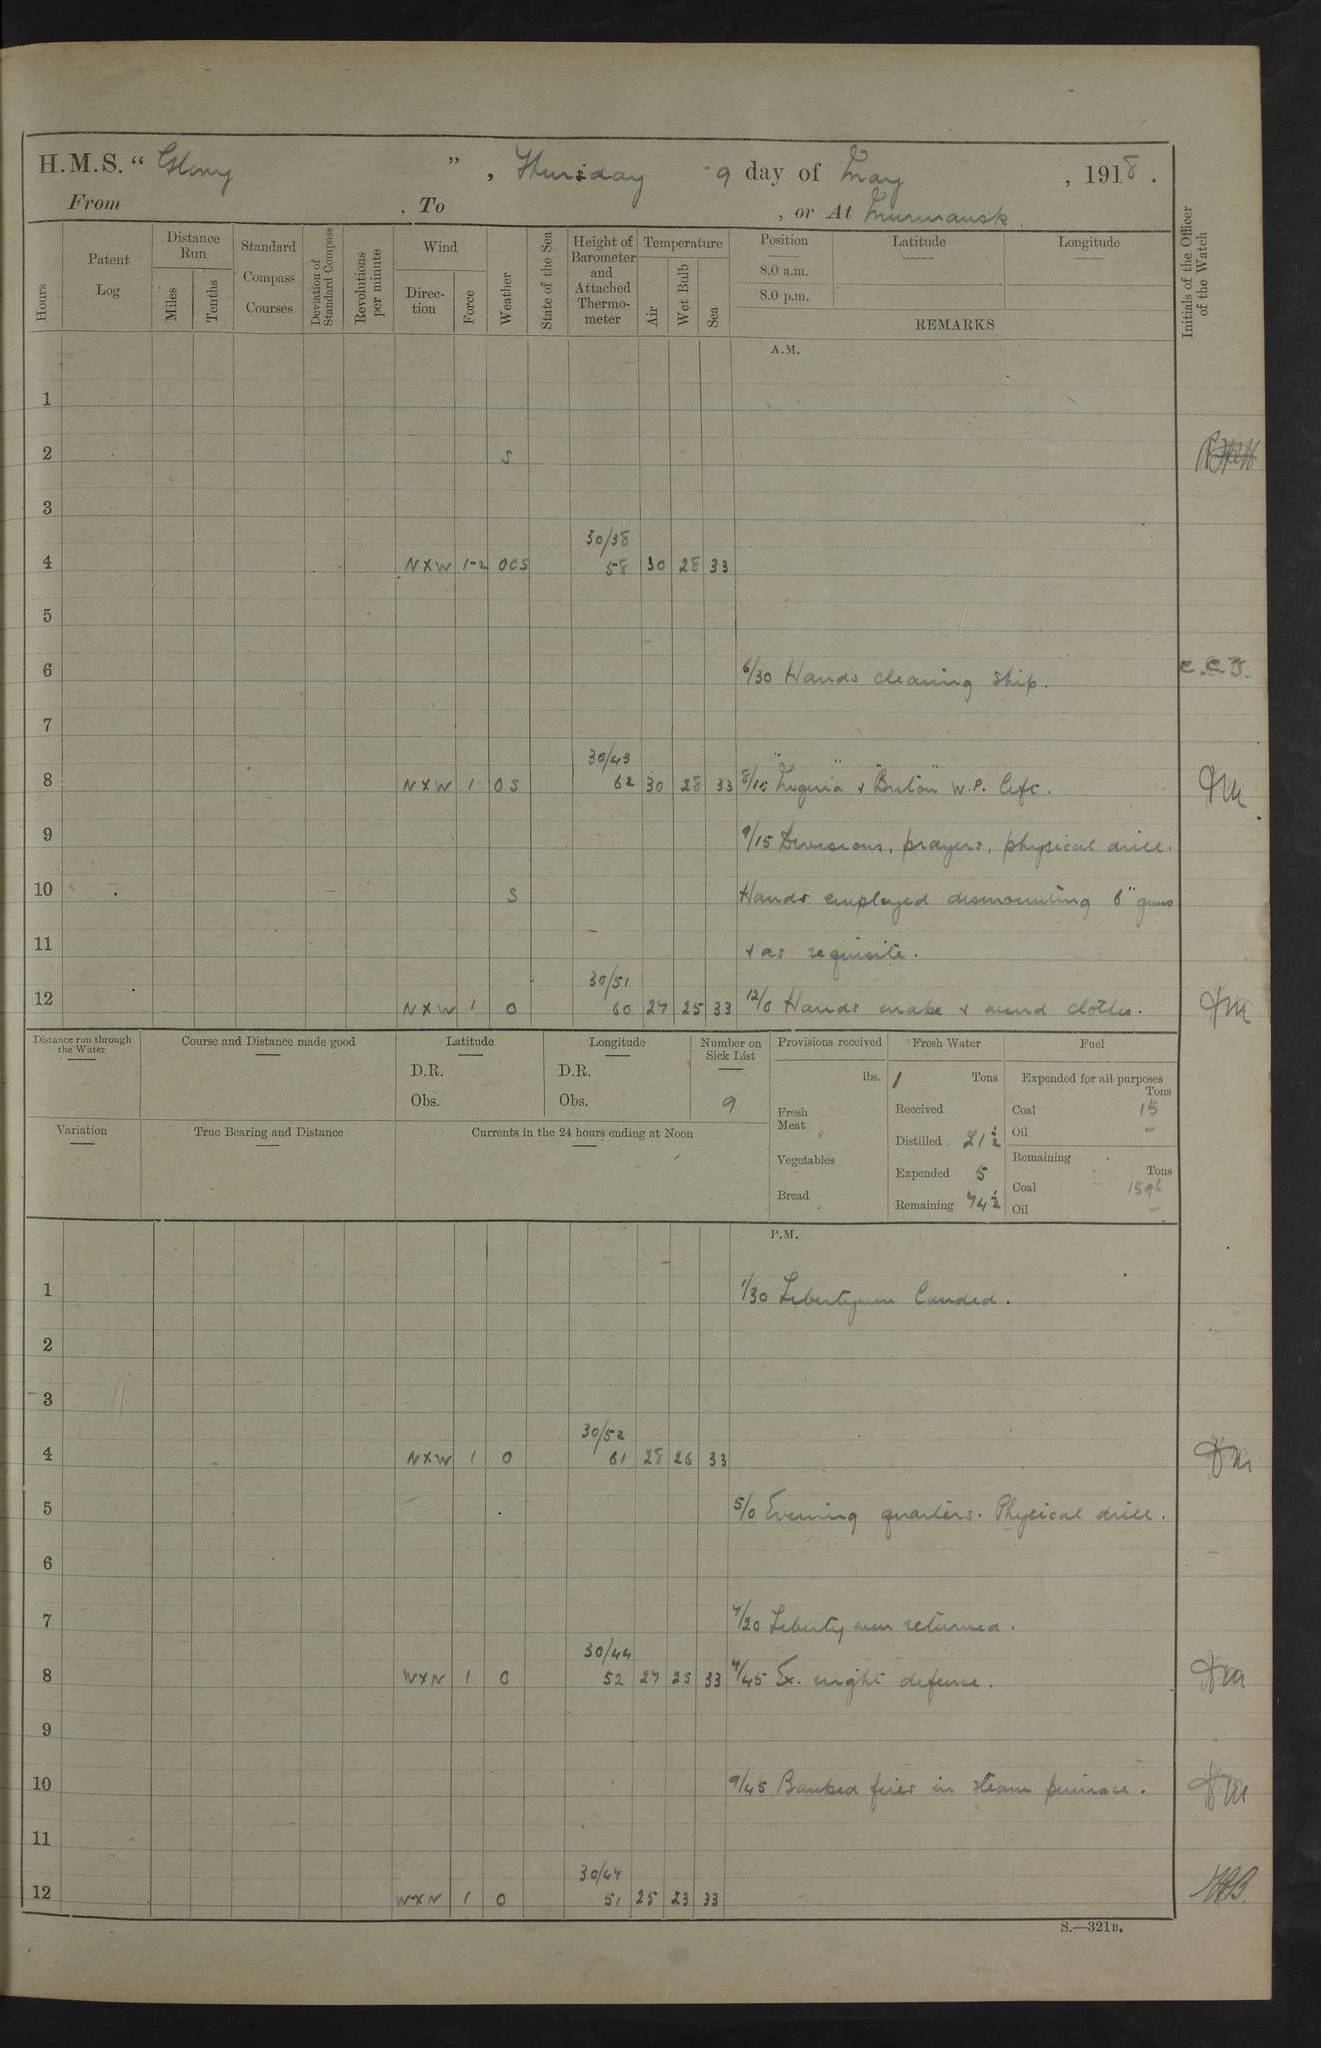 H.M.S. “ Glory ” , Thursday 9 day of May , 1918 .
From , To , or At Murmansk
Hours
Patent Log
Distance Run
Miles
Tenths
Standard Compass Courses
Deviation of Standard Compass
Revolutions per minute
Wind
Direction
Force
Weather
State of the Sea
Height of Barometer and Attached Thermometer
Temperature
Air
Wet Bulb
Sea
Position
8.0 a.m.
8.0 p.m.
Latitude
Longitude
REMARKS
Initials of the Officer of the Watch
A.M.
1
2 S
3
30/38
4 N X W 1-2 OCS 58 30 28 33
5
6 6/30 Hands cleaning ship. C.C.J.
7
30/43
8 N X W 1 OS 62 30 28 33 8/15 & W.P. left.
9 9/15 Divisions, prayers, physical drill.
10 S Hands employed dismounting 6" guns
11 & as requisite.
30/51
12 N X W 1 O 60 27 25 33 12/0 Hands make & mend clothes.
Distance run through the Water
Course and Distance made good
Latitude
D.R.
Obs.
Longitude
D.R.
Obs.
Number on Sick List
9
Variation
True Bearing and Distance
Currents in the 24 hours ending at Noon
Provisions received
lbs.
Fresh Meat
Vegetables
Bread
Fresh Water
Tons
Received
Distilled 21½
Expended 5
Remaining 74½
Fuel
Expended for all purposes
Tons
Coal 15
Oil –
Remaining
Tons
Coal 1596
Oil –
P.M.
1 1/30 Libertymen landed.
2
3
30/52
4 N X W 1 O 61 28 26 33
5 5/0 Evening quarters. Physical drill.
6
7 7/20 Liberty men returned.
30/44
8 W X N 1 O 52 27 25 33 7/45 Ex. night defence.
9
10 9/45 Banked fires in steam pinnace.
11
30/44
12 W X N 1 O 51 25 23 33
S.—321B.